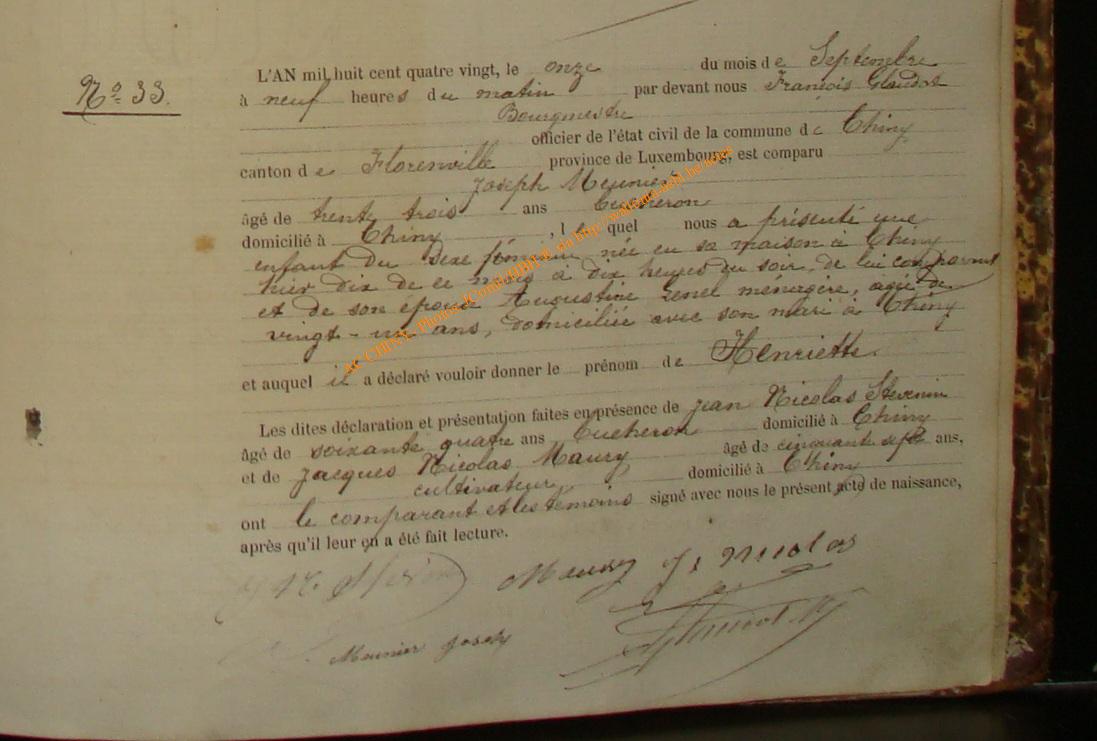 Nº 33.
L'AN mil huit cent quatre vingt, le onze du mois de Septembre
à neuf heures du matin par devant nous François Glaudot
Bourgmestre
officier de l'état civil de la commune de Chiny
canton de Florenville province de Luxembourg, est comparu
Joseph Meunier
âgé de trente trois ans bucheron
domicilié à Chiny, lequel nous a présenté une
enfant du sexe féminin née en sa maison à Chiny
hier dix de ce mois à dix heures du soir, de lui comparant
et de son épouse Augustine Genel menagère, agée de
vingt-un ans, domiciliée avec son mari à Chiny
et auquel il a déclaré vouloir donner le prénom de Henriette.
Les dites déclaration et présentation faites en présence de Jean Nicolas Stevenin
âgé de soixante quatre ans bucheron domicilié à Chiny
et de Jacques Nicolas Maury âgé de cinquante sept ans,
cultivateur domicilié à Chiny
ont le comparant et les témoins signé avec nous le présent acte de naissance,
après qu'il leur en a été fait lecture.
Maury J. Nicolas
Meunier Joseph